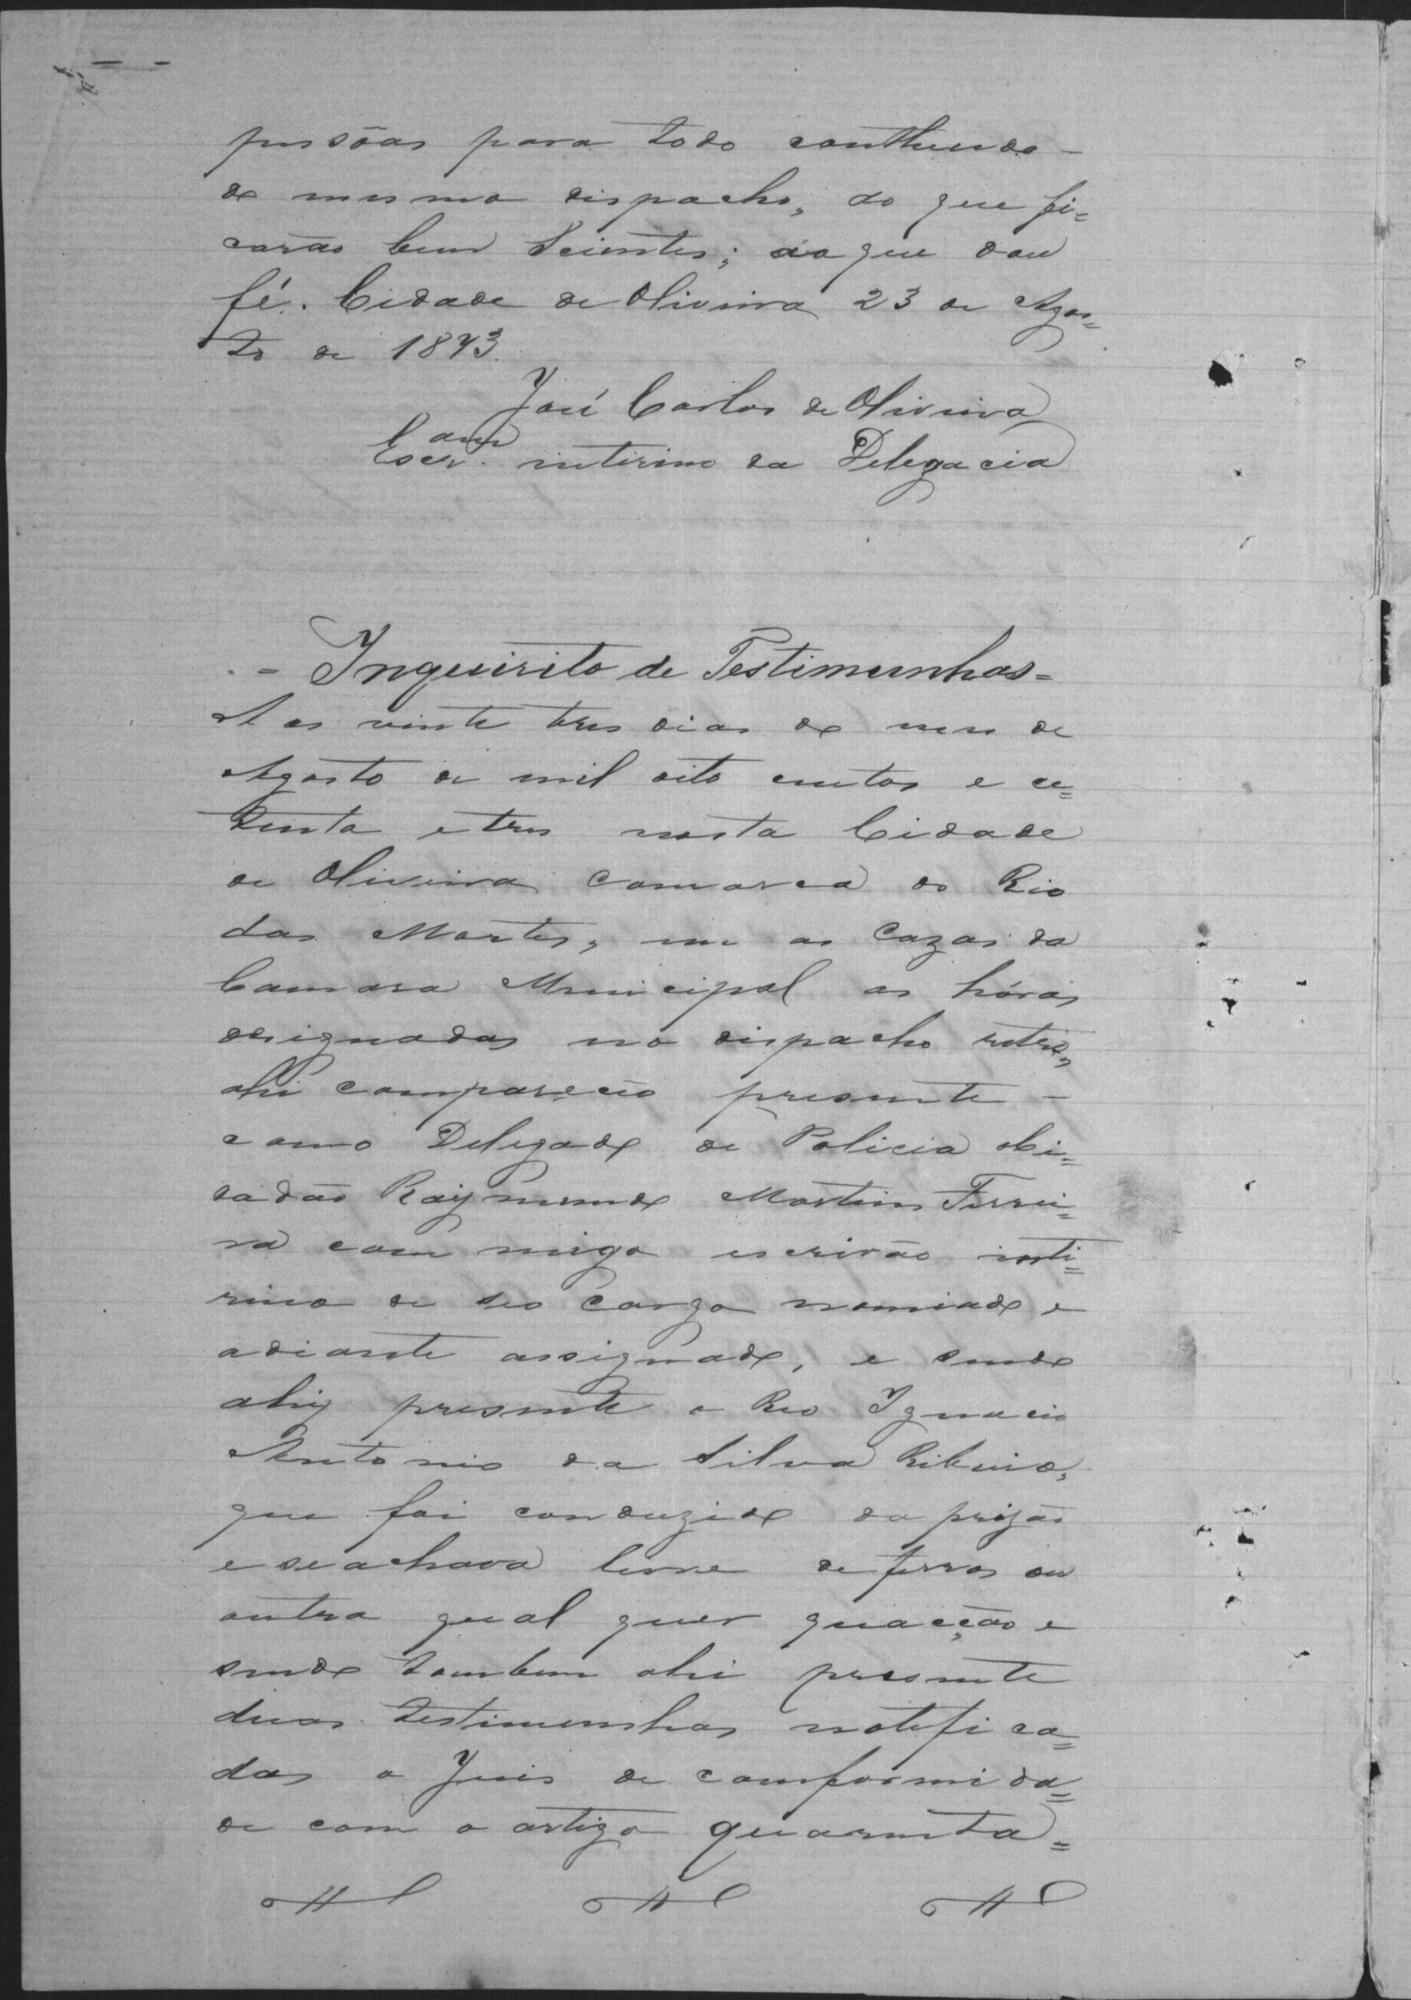 pessôas para todo conthendo -
do mesmo dispacho, do que fi=
carão bem Scientes; do que dou
fé. Cidade de Oliveira 23 de Agos=
to de 1873.
José Carlos de Oliveira
Escr.am interino da Delegacia
- Inquirito de Testimunhas =
Aos vinte tres dias do mes de
Agosto de mil oito centos e ce=
tenta e tres nesta Cidade
de Oliveira Comarca do Rio
das Mortes, em as Cazas da
Camara Municipal as hóras
designadas no dispacho retro,
ahi compareceo presente -
como Delegado de Policia o Ci=
dadão Raymundo Martins Ferrei=
ra com migo escrivão inti=
rino de seo Cargo nomiado e
adiante assignado, e sendo
ahy presente o Reo Ignacio
Antonio da Silva Ribeiro,
que foi conduzido da prizão
e se achava livre de ferros ou
outra qual quer quacção e
sendo tambem ahi presente
duas testimunhas notifica=
das o Juis de comformida=
de com o artigo quarenta =